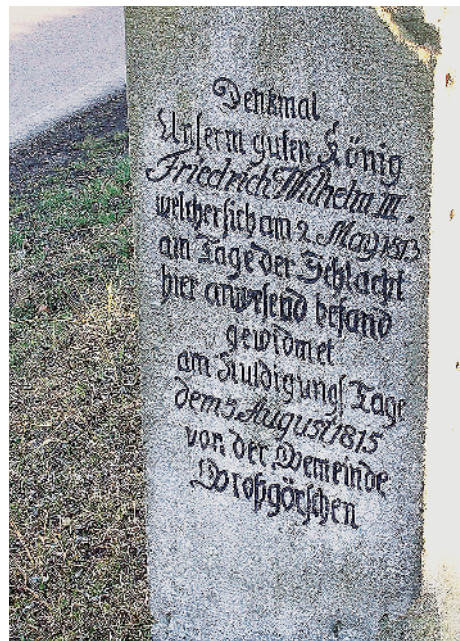 Denkmal
Unserm guten König
Friedrich Wilhelm III.
welcher sich am 2. May 1813
am Tage der Schlacht
hier anwesend befand
gewidmet
am Huldigungs Tage
dem 3. August 1815
von der Gemeinde
Großgörschen